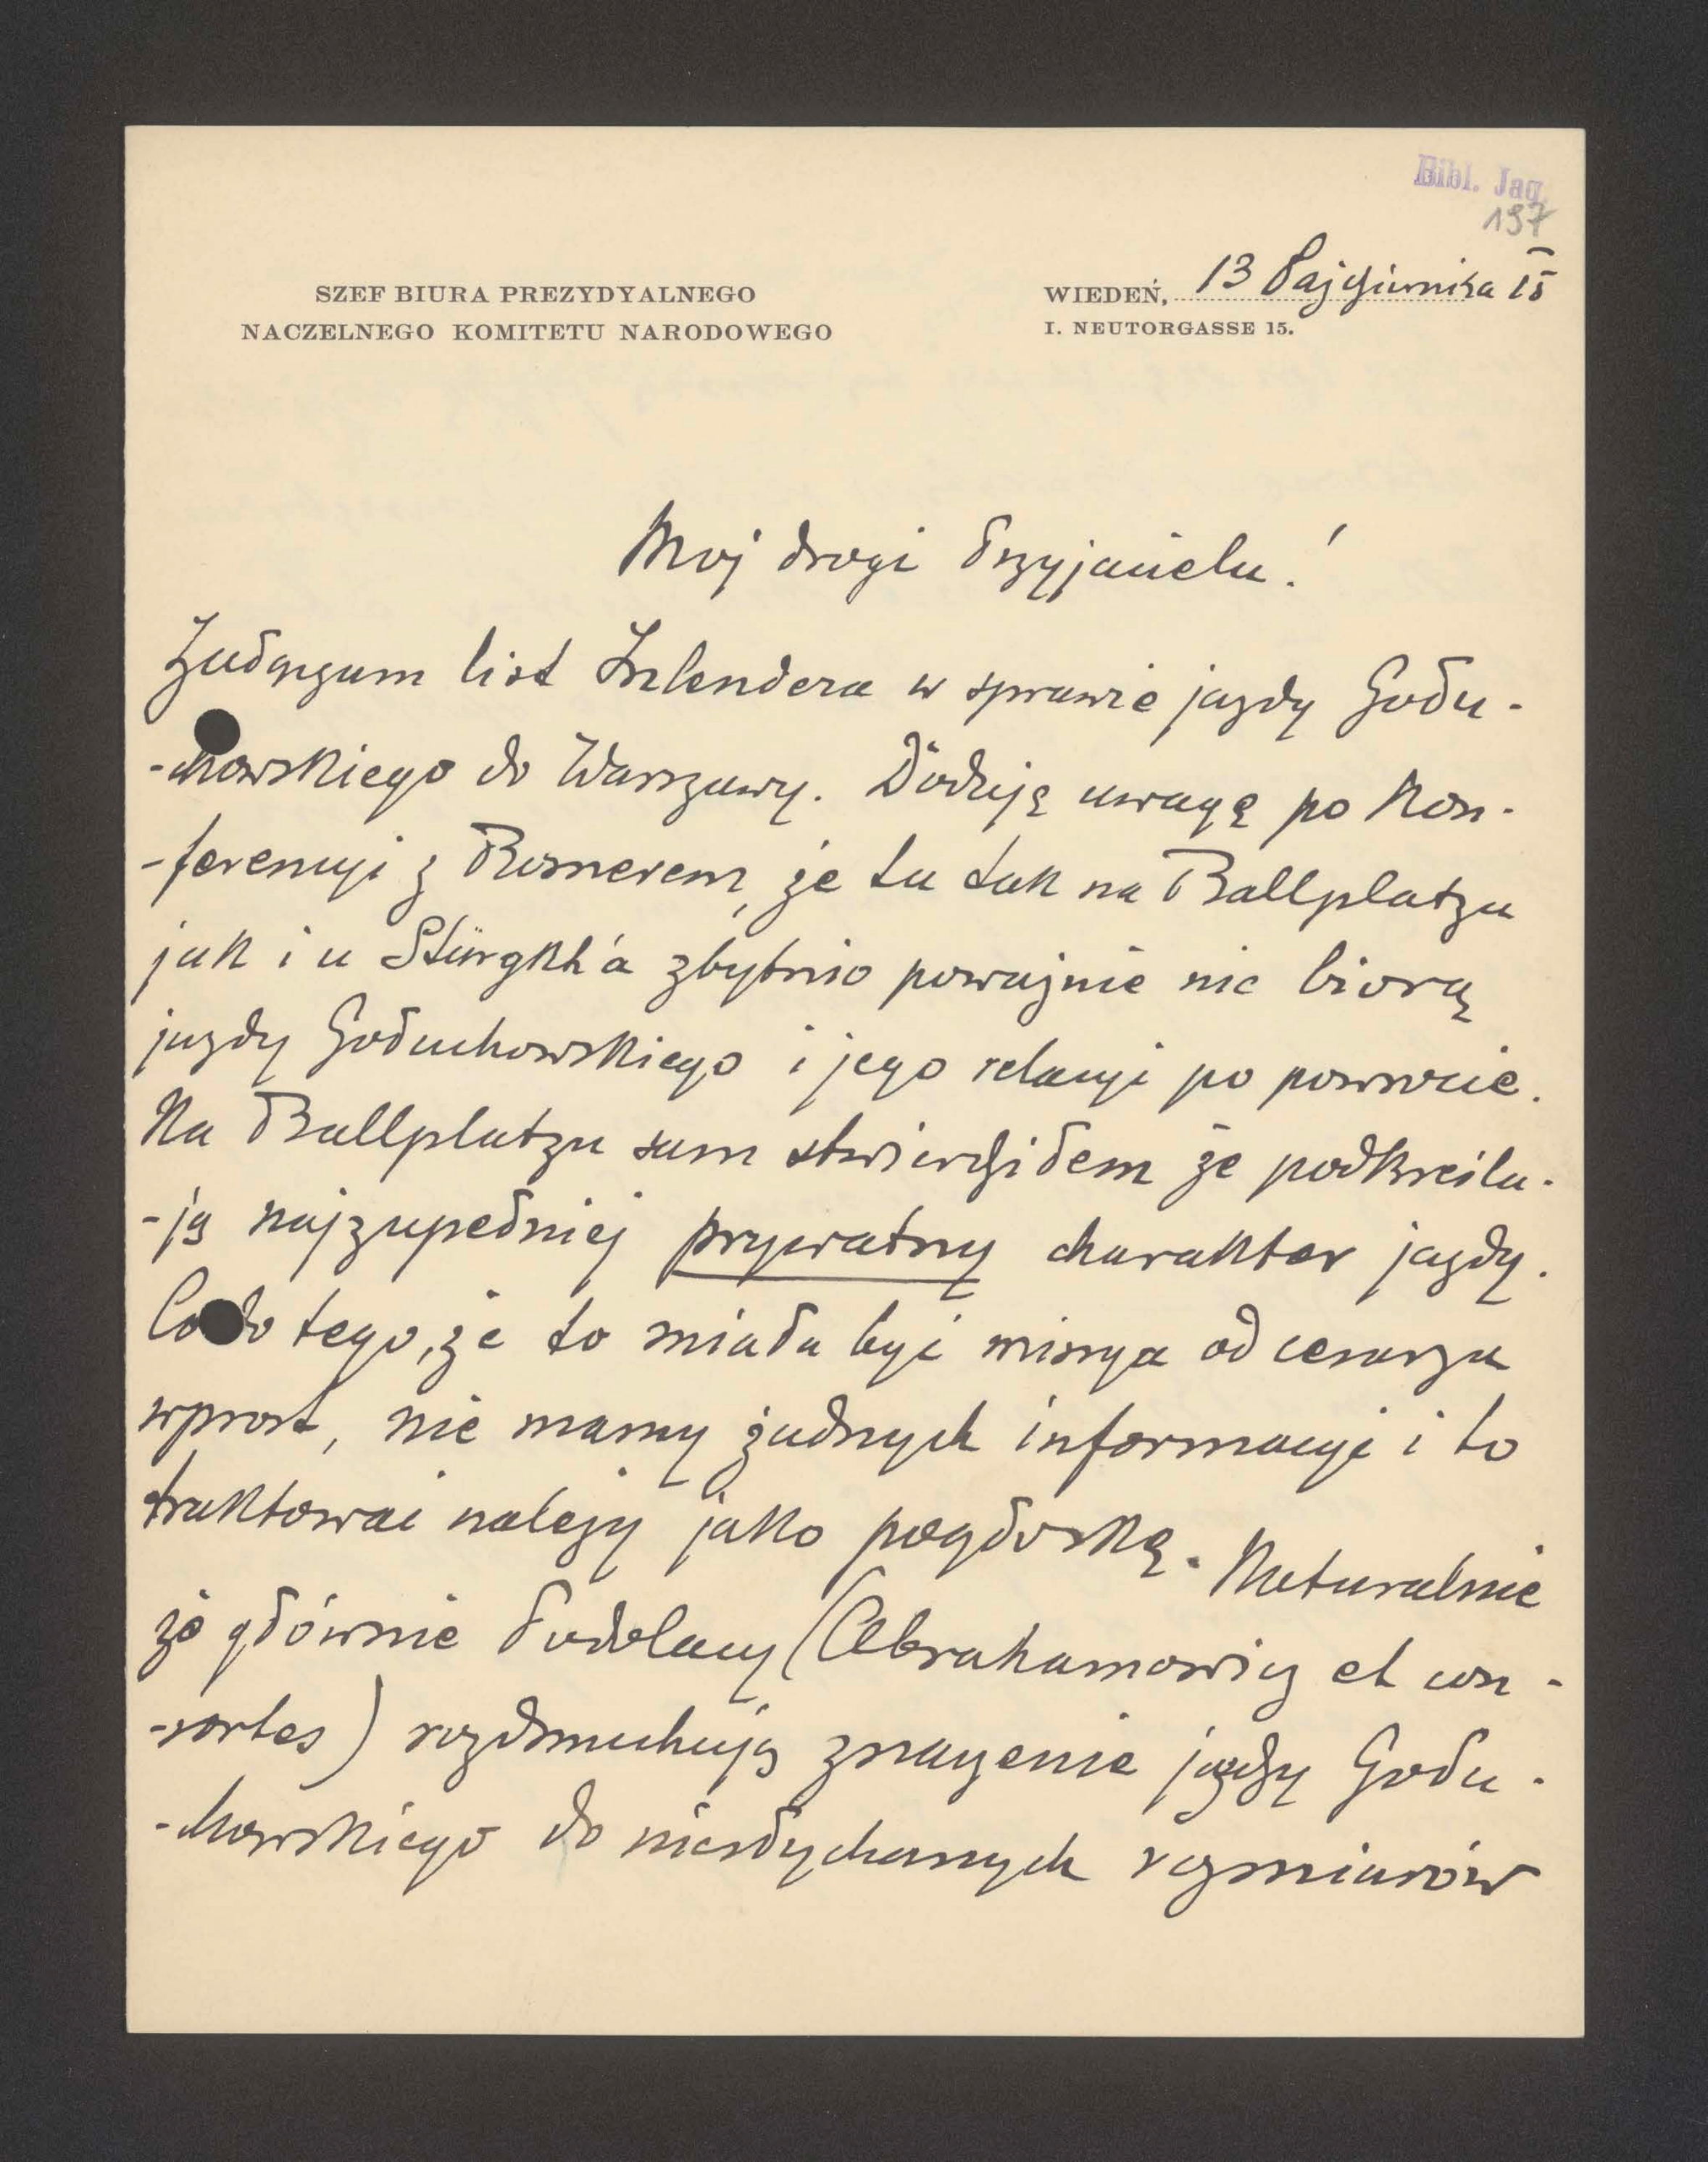 Bibl. Jag.
197
SZEF BIURA PREZYDYALNEGO
NACZELNEGO KOMITETU NARODOWEGO
WIEDEŃ, 13 Października 15
I. NEUTORGASSE 15.
Moj drogi Przyjacielu!
Załączam list Inlendera w sprawie jazdy Gołu-
-chowskiego do Warszawy. Dodaję uwagę po kon-
-ferencyi z Rosnerem, że tu tak na Ballplatzu
jak i u Stürgkh'a zbytnio poważnie nie biorą
jazdy Gołuchowskiego i jego relacyi po powrocie.
Na Ballplatzu sam stwierdziłem że podkreśla-
-ją najzupełniej prywatny charakter jazdy.
Co do tego, że to miała być misya od cesarza
wprost, nie mamy żadnych informacyi i to
traktować należy jako pogłoskę. Naturalnie
że głównie Podolacy (Abrahamowicz et con-
-sortes) rozdmuchują znaczenie jazdy Gołu-
-chowskiego do niesłychanych rozmiarów